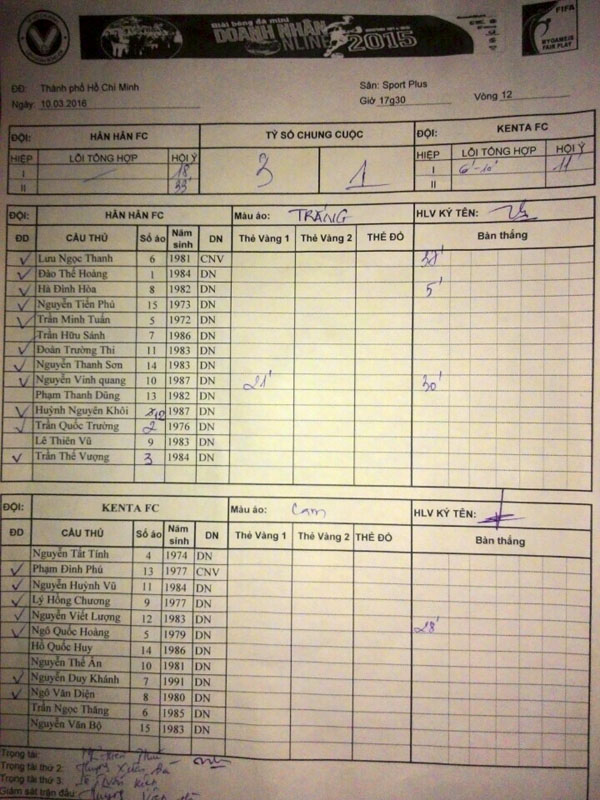 Giải bóng đá mini
DOANH NHÂN
NLINE 2015
FIFA
FAIR PLAY
ĐĐ: Thành phố Hồ Chí Minh Sân: Sport Plus
Ngày: 10.03.2016 Giờ 17g30 Vòng 12
ĐỘI: HÀN HÂN FC TỶ SỐ CHUNG CUỘC ĐỘI: KENTA FC
HIỆP LỖI TỔNG HỢP HỘI Ý 3 1 HIỆP LỖI TỔNG HỢP HỘI Ý
I 18' I 6'-10' 11'
II 33' II
ĐỘI: HÀN HÂN FC Màu áo: TRẮNG HLV KÝ TÊN:
ĐD CẦU THỦ Số áo Năm sinh DN Thẻ Vàng 1 Thẻ Vàng 2 THẺ ĐỎ Bàn thắng
Lưu Ngọc Thanh 6 1981 CNV
Đào Thế Hoàng 1 1984 DN
Hà Đình Hòa 8 1982 DN 5'
Nguyễn Tiến Phú 15 1973 DN
Trần Minh Tuấn 5 1972 DN
Trần Hữu Sánh 7 1986 DN
Đoàn Trường Thi 11 1983 DN
Nguyễn Thanh Sơn 14 1983 DN
Nguyễn Vinh quang 10 1987 DN 21' 30'
Phạm Thanh Dũng 13 1982 DN
Huỳnh Nguyên Khôi 12 1987 DN
Trần Quốc Trường 2 1976 DN
Lê Thiên Vũ 9 1983 DN
Trần Thế Vượng 3 1984 DN
ĐỘI: KENTA FC Màu áo: Cam HLV KÝ TÊN:
ĐD CẦU THỦ Số áo Năm sinh DN Thẻ Vàng 1 Thẻ Vàng 2 THẺ ĐỎ Bàn thắng
Nguyễn Tất Tính 4 1974 DN
Phạm Đình Phú 13 1977 CNV
Nguyễn Huỳnh Vũ 11 1984 DN
Lý Hồng Chương 9 1977 DN
Nguyễn Viết Lượng 12 1983 DN
Ngô Quốc Hoàng 5 1979 DN 28'
Hồ Quốc Huy 14 1986 DN
Nguyễn Thế Ân 10 1981 DN
Nguyễn Duy Khánh 7 1991 DN
Ngô Văn Diện 8 1980 DN
Trần Ngọc Thăng 6 1985 DN
Nguyễn Văn Bộ 15 1983 DN
Trọng tài:
Trọng tài thứ 2:
Trọng tài thứ 3:
Giám sát trận đấu: